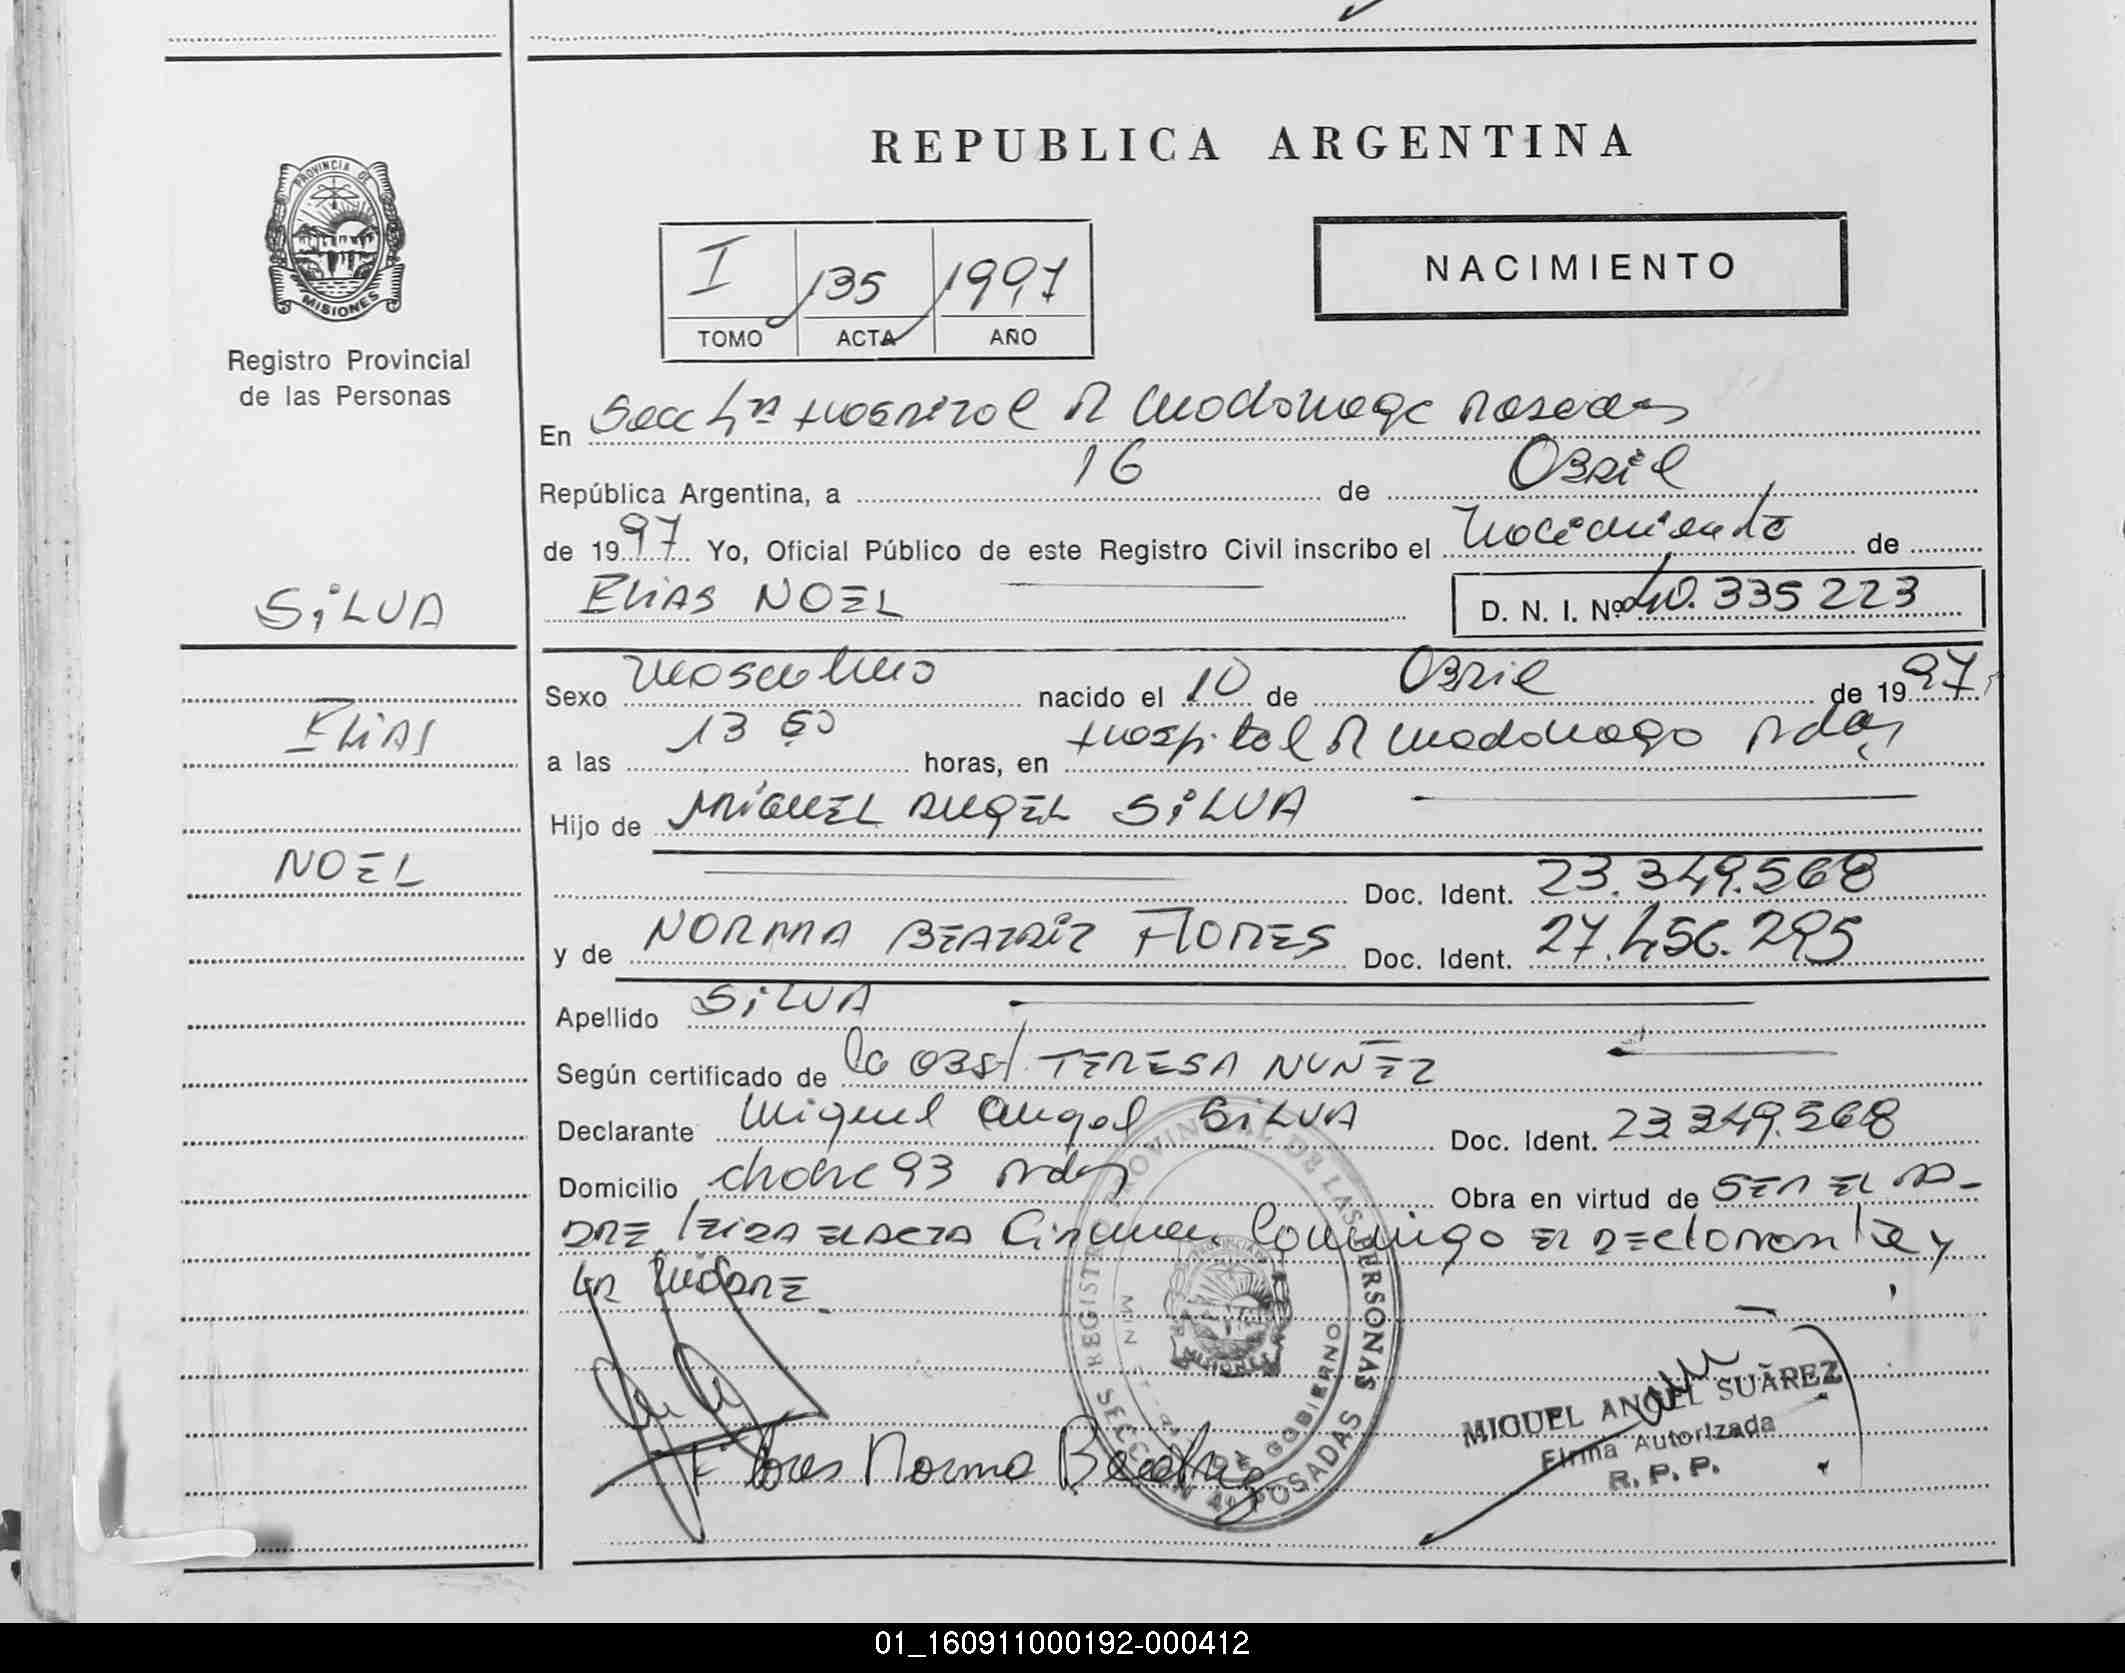 REPUBLICA ARGENTINA
PROVINCIA DE
MISIONES
Registro Provincial
de las Personas
NACIMIENTO
I 135 1997
TOMO ACTA AÑO
En Secc 4ta Hospital R Madariaga Posadas
República Argentina, a 16 de Abril
de 1997 Yo, Oficial Público de este Registro Civil inscribo el Nacimiento de
SiLVA
ELiAS NOEL D. N. I. Nº 40.335223
Sexo Masculino nacido el 10 de Abril de 1997
ELiAS
a las 13 50 horas, en Hospital R Madariaga Pdas
Hijo de MiGUEL ANGEL SiLVA
NOEL
Doc. Ident. 23.349.568
y de NORMA BEATRiZ FLORES Doc. Ident. 27.456.295
Apellido SiLVA
Según certificado de la OBST. TERESA NUÑEZ
Declarante Miguel Angel SiLVA Doc. Ident. 23.349.568
Domicilio 93 Pdas Obra en virtud de SER EL PA-
DRE leiDA EL ACTA Firman Conmigo EL DEclarante y
LA MADRE
REGISTRO PROVINCIAL DE LAS PERSONAS
GOBIERNO
MISIONES
SECCION 4º POSADAS
Flores Norma Beatriz
MIGUEL ANGEL SUÁREZ
Firma Autorizada
R. P. P.
01_160911000192-000412